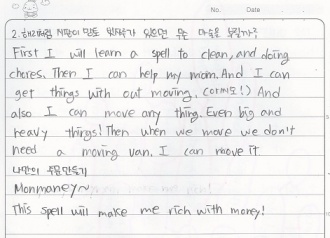 No. Date
2. 해리처럼 지팡이 만든 뒤 주문 있으면 무슨 마술을 부릴까?
First I will learn a spell to clean, and doing
chores. Then I can help my mom. And I can
get things with out moving. (아씨오!) And
also I can move any thing. Even big and
heavy things! Then when we move we don't
need a moving van. I can move it
나만의 주문만들기
Monmaney~
This spell will make me rich with money!